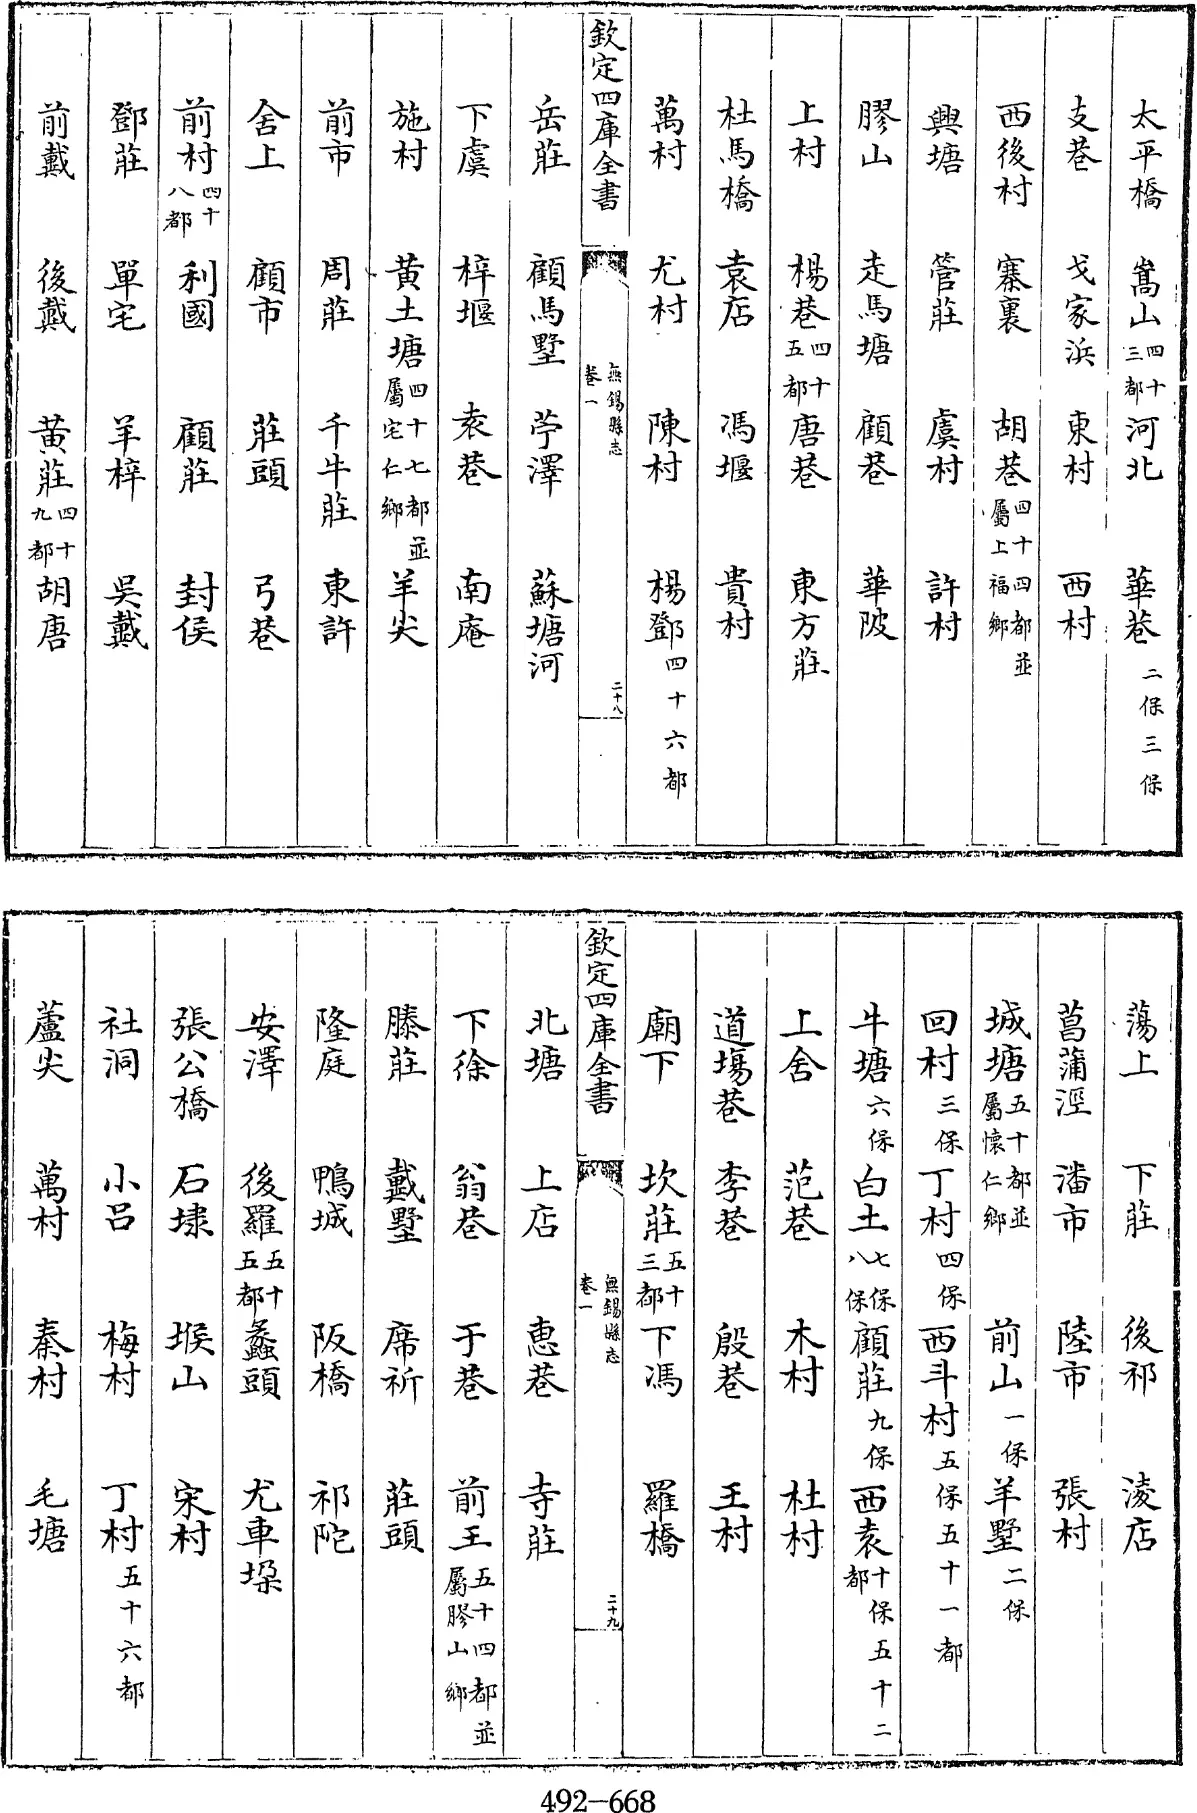 太平橋 嵩山四十三都 河北 華巷二保三保
支巷 戈家浜 東村 西村
西後村 寨裏 胡巷四十四都並屬上福鄉
興塘 管莊 虞村 許村
膠山 走馬塘 顧巷 華陂
上村 楊巷四十五都 唐巷 東方莊
杜馬橋 袁店 馮堰 貴村
萬村 尤村 陳村 楊鄧四十六都
欽定四庫全書 無錫縣志 卷一 二十八
岳莊 顧馬墅 苧澤 蘇塘河
下虞 梓堰 袁巷 南庵
施村 黄土塘四十七都並屬宅仁鄉 羊尖
前市 周莊 千牛莊 東許
舍上 顧市 莊頭 弓巷
前村四十八都 利國 顧莊 封侯
鄧莊 單宅 羊梓 吳戴
前戴 後戴 黄莊四十九都 胡唐
蕩上 下莊 後祁 淩店
菖蒲涇 潘市 陸市 張村
城塘五十都並屬懷仁鄉 前山一保 羊墅二保
回村三保 丁村四保 西斗村五保五十一都
牛塘六保 白土七保八保 顧莊九保 西袁十保五十二都
上舍 范巷 木村 杜村
道場巷 李巷 殷巷 王村
廟下 坎莊五十三都 下馮 羅橋
欽定四庫全書 無錫縣志 卷一 二十九
北塘 上店 惠巷 寺莊
下徐 翁巷 于巷 前王五十四都並屬膠山鄉
滕莊 戴墅 席祈 莊頭
隆庭 鴨城 阪橋 祁陀
安澤 後羅五十五都 蠡頭 尤車垜
張公橋 石埭 堠山 宋村
社洞 小吕 梅村 丁村五十六都
蘆尖 萬村 秦村 毛塘
492-668